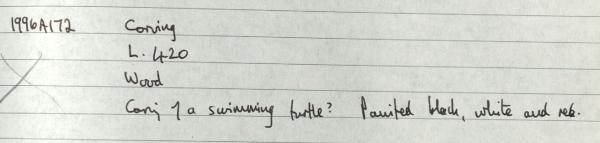 1996A172 Carving
L. 420
Wood
Carving of a swimming turtle? Painted black, white and red.